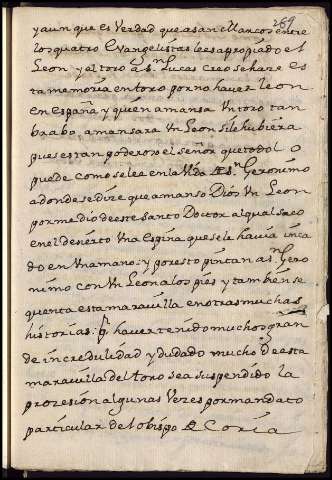 269
y aunque es Verdad que a san Marcos entre
los quatro Evangelistas le es apropiado el
Leon y el toro a Sn Lucas creo se hare es
ta memoria en toro por no haver leon
en España y quien amansa Un toro tan
brabo amansara Un Leon si le hubiera
pues es tan poderoso el señor que todo l o
puede como se lee en la Vida de Sn Geronimo
adonde se dize que amanso Dios Un Leon
por medio de este santo Doctor al qual saco
en el desierto Una Espina que se le havia inca
do en Una mano: y por esto pintan a Sn Gero
nimo con Un Leon a los pies y tambien se
quenta esta maravilla en otras muchas
historias: pr haver tenido muchos gran
de incredulidad y dudado mucho de esta
maravilla del toro se a suspendido la
prozesion algunas Vezes por mandato
particular del obispo de Coria